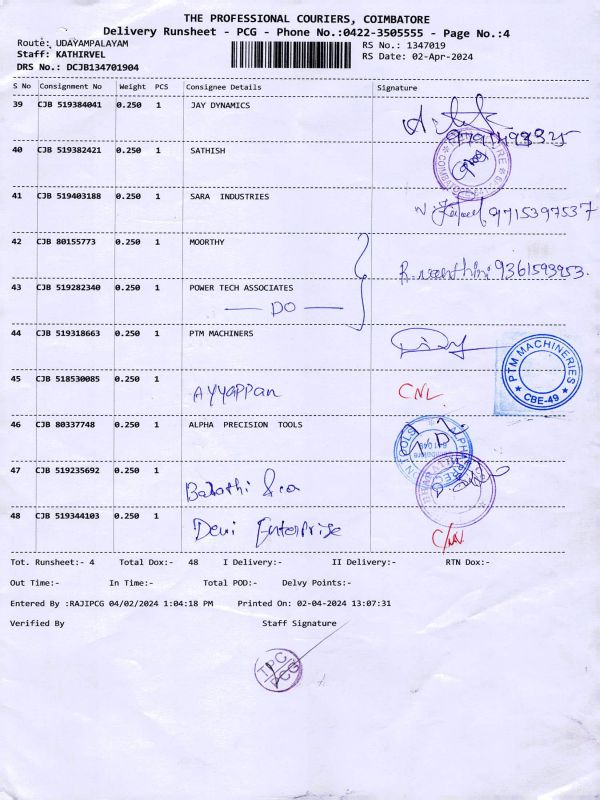 THE PROFESSIONAL COURIERS, COIMBATORE
Delivery Runsheet - PCG - Phone No.:0422-3505555 - Page No.:4
Route: UDAYAMPALAYAM RS No.: 1347019
Staff: KATHIRVEL RS Date: 02-Apr-2024
DRS No.: DCJB134701904
S No Consignment No Weight PCS Consignee Details Signature
39 CJB 519384041 0.250 1 JAY DYNAMICS
40 CJB 519382421 0.250 1 SATHISH
41 CJB 519403188 0.250 1 SARA INDUSTRIES 9715397537
42 CJB 80155773 0.250 1 MOORTHY
9361593953.
43 CJB 519282340 0.250 1 POWER TECH ASSOCIATES
— DO —
44 CJB 519318663 0.250 1 PTM MACHINERS
PTM MACHINERIES
CBE-49
45 CJB 518530085 0.250 1 Ayyappan CNL
46 CJB 80337748 0.250 1 ALPHA PRECISION TOOLS
47 CJB 519235692 0.250 1
48 CJB 519344103 0.250 1 Devi Enterprise
Tot. Runsheet:- 4 Total Dox:- 48 I Delivery:- II Delivery:- RTN Dox:-
Out Time:- In Time:- Total POD:- Delvy Points:-
Entered By :RAJIPCG 04/02/2024 1:04:18 PM Printed On: 02-04-2024 13:07:31
Verified By Staff Signature